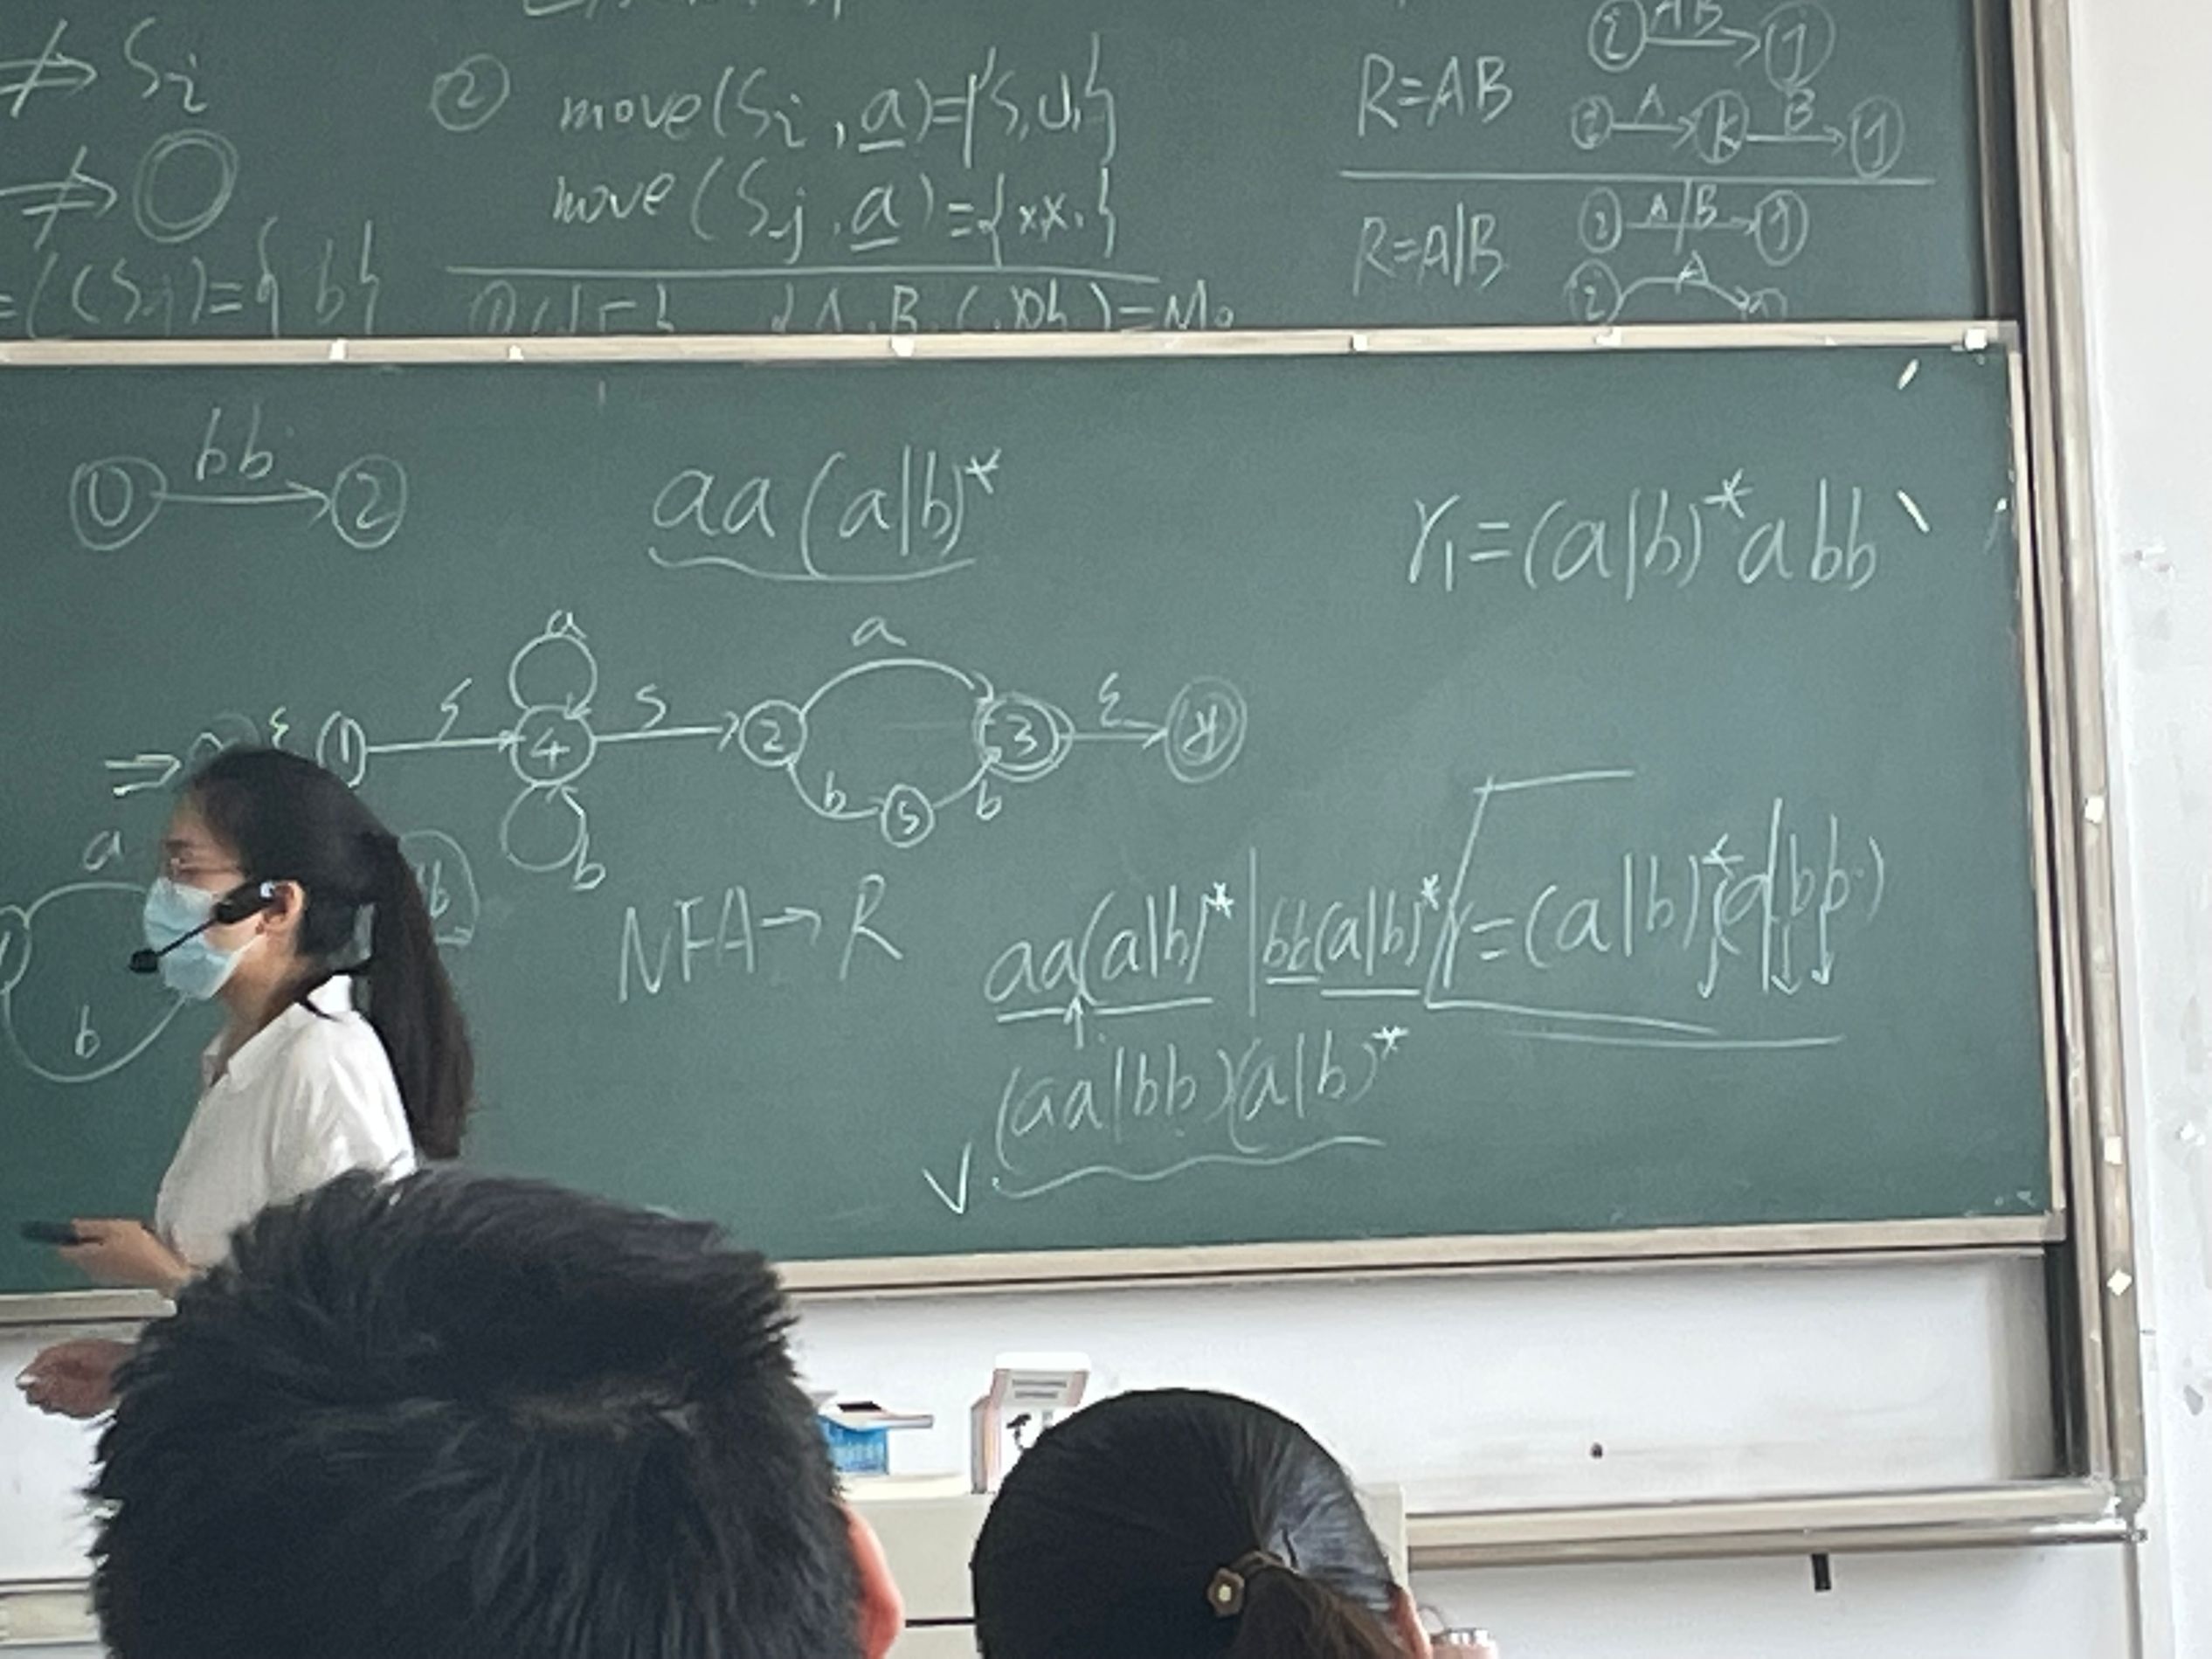 ⇏ Si
② move(Si, a)={S,U,}
move(Sj, a)={xx,}
⇏
((Sj)={b}
R=AB
i AB j
i A k B j
R=A|B
i A|B j
i A
0 bb 2
aa(a|b)*
r1=(a|b)*abb
a a
⇒ ε 1 ε 4 ε 2 3 ε y
b 5 b
b
a
b
NFA→R
aa(a|b)*|bb(a|b)*
r=(a|b)*(a|bb)
(aa|bb)(a|b)*